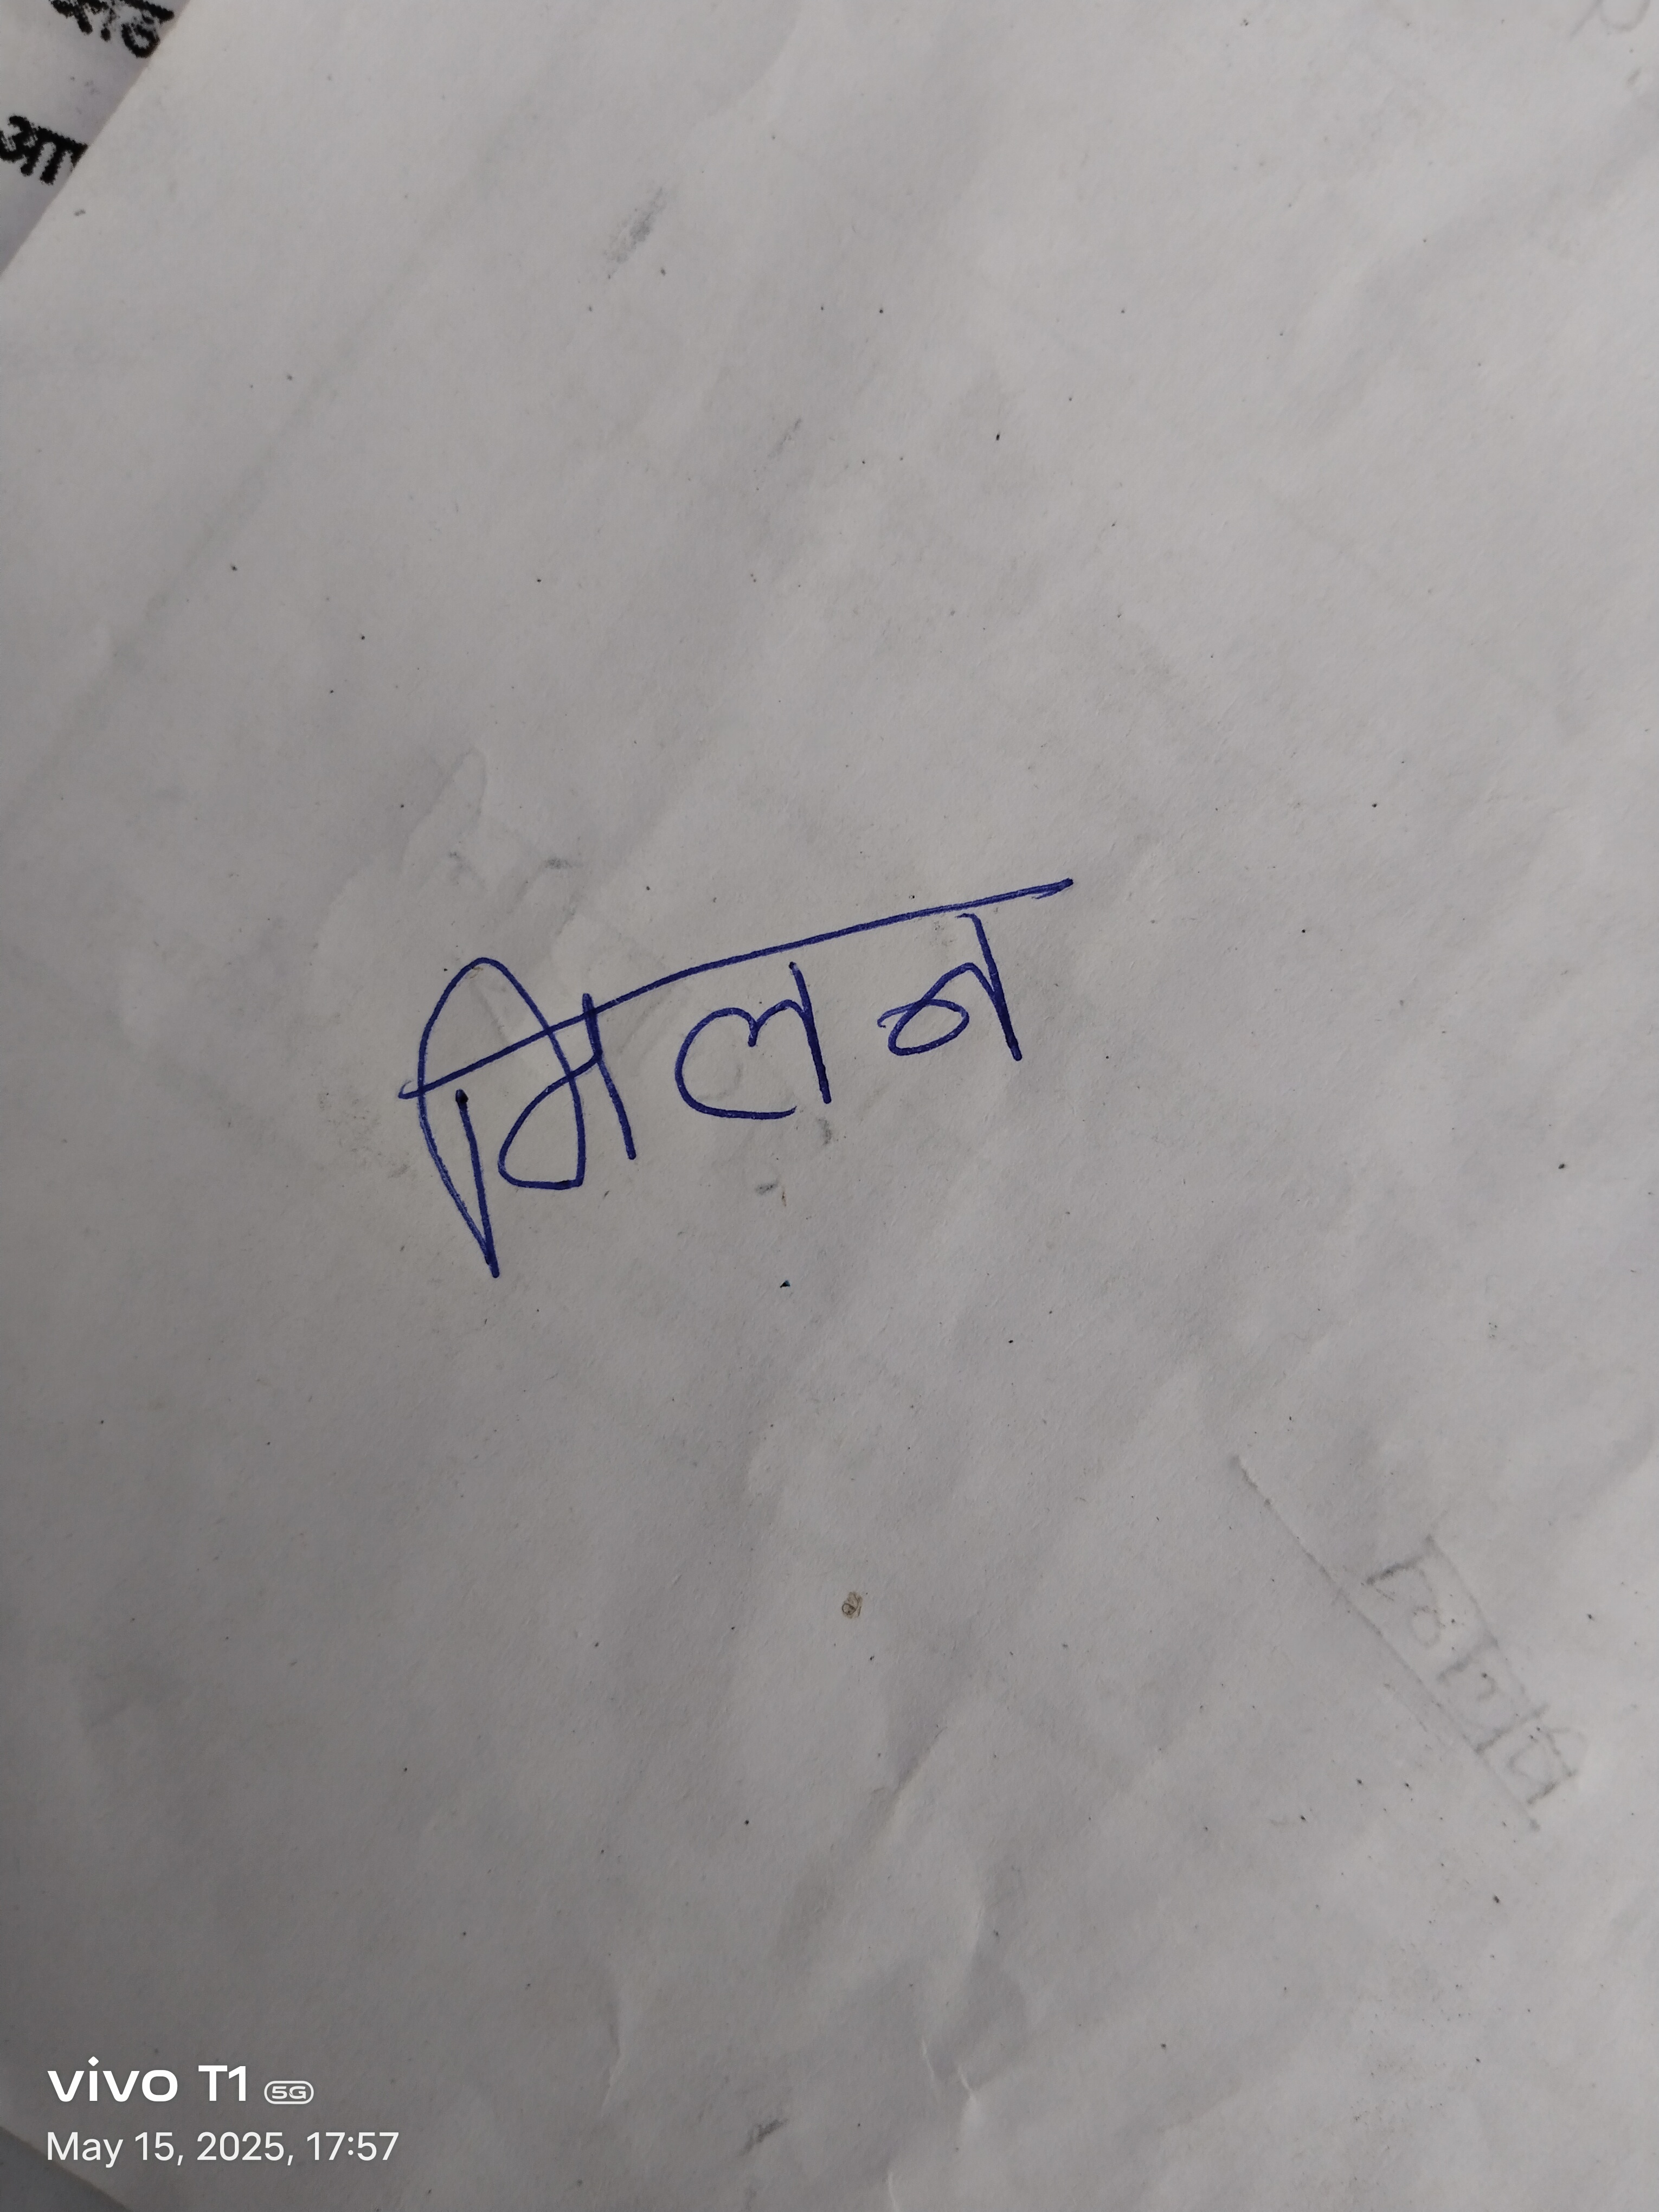 आ
मिलन
vivo T1 5G
May 15, 2025, 17:57